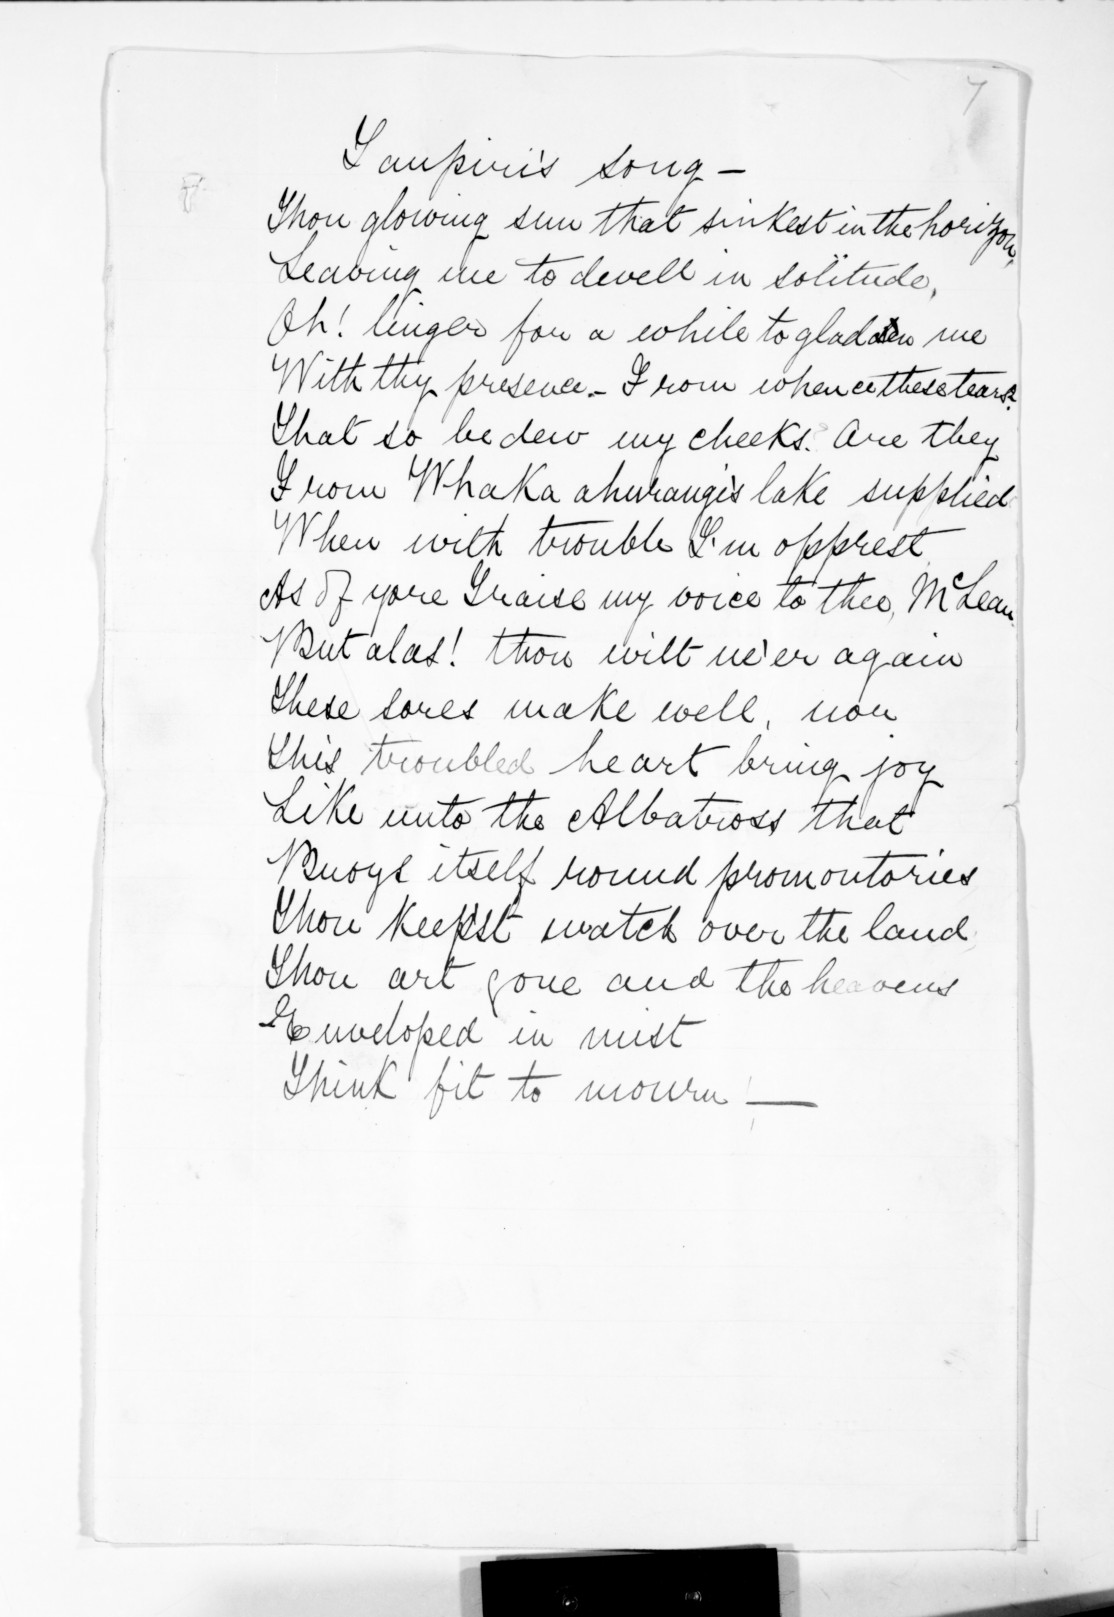 7
Taupiri's song —
Thou glowing sun that sinkest in the horizon,
Leaving me to dwell in solitude,
Oh! linger for a while to gladden me
With thy presence. - From whence these tears?
That so bedew my cheeks. Are they
From Whaka ahurangi's lake supplied
When with trouble I'm opprest
As of yore I raise my voice to thee, McLean
But alas! thou wilt ne'er again
These sores make well, nor
This troubled heart bring joy
Like unto the Albatross that
Buoys itself round promontories
Thou keep'st watch over the land
Thou art gone and the heavens
Enveloped in mist
Think fit to mourn! —